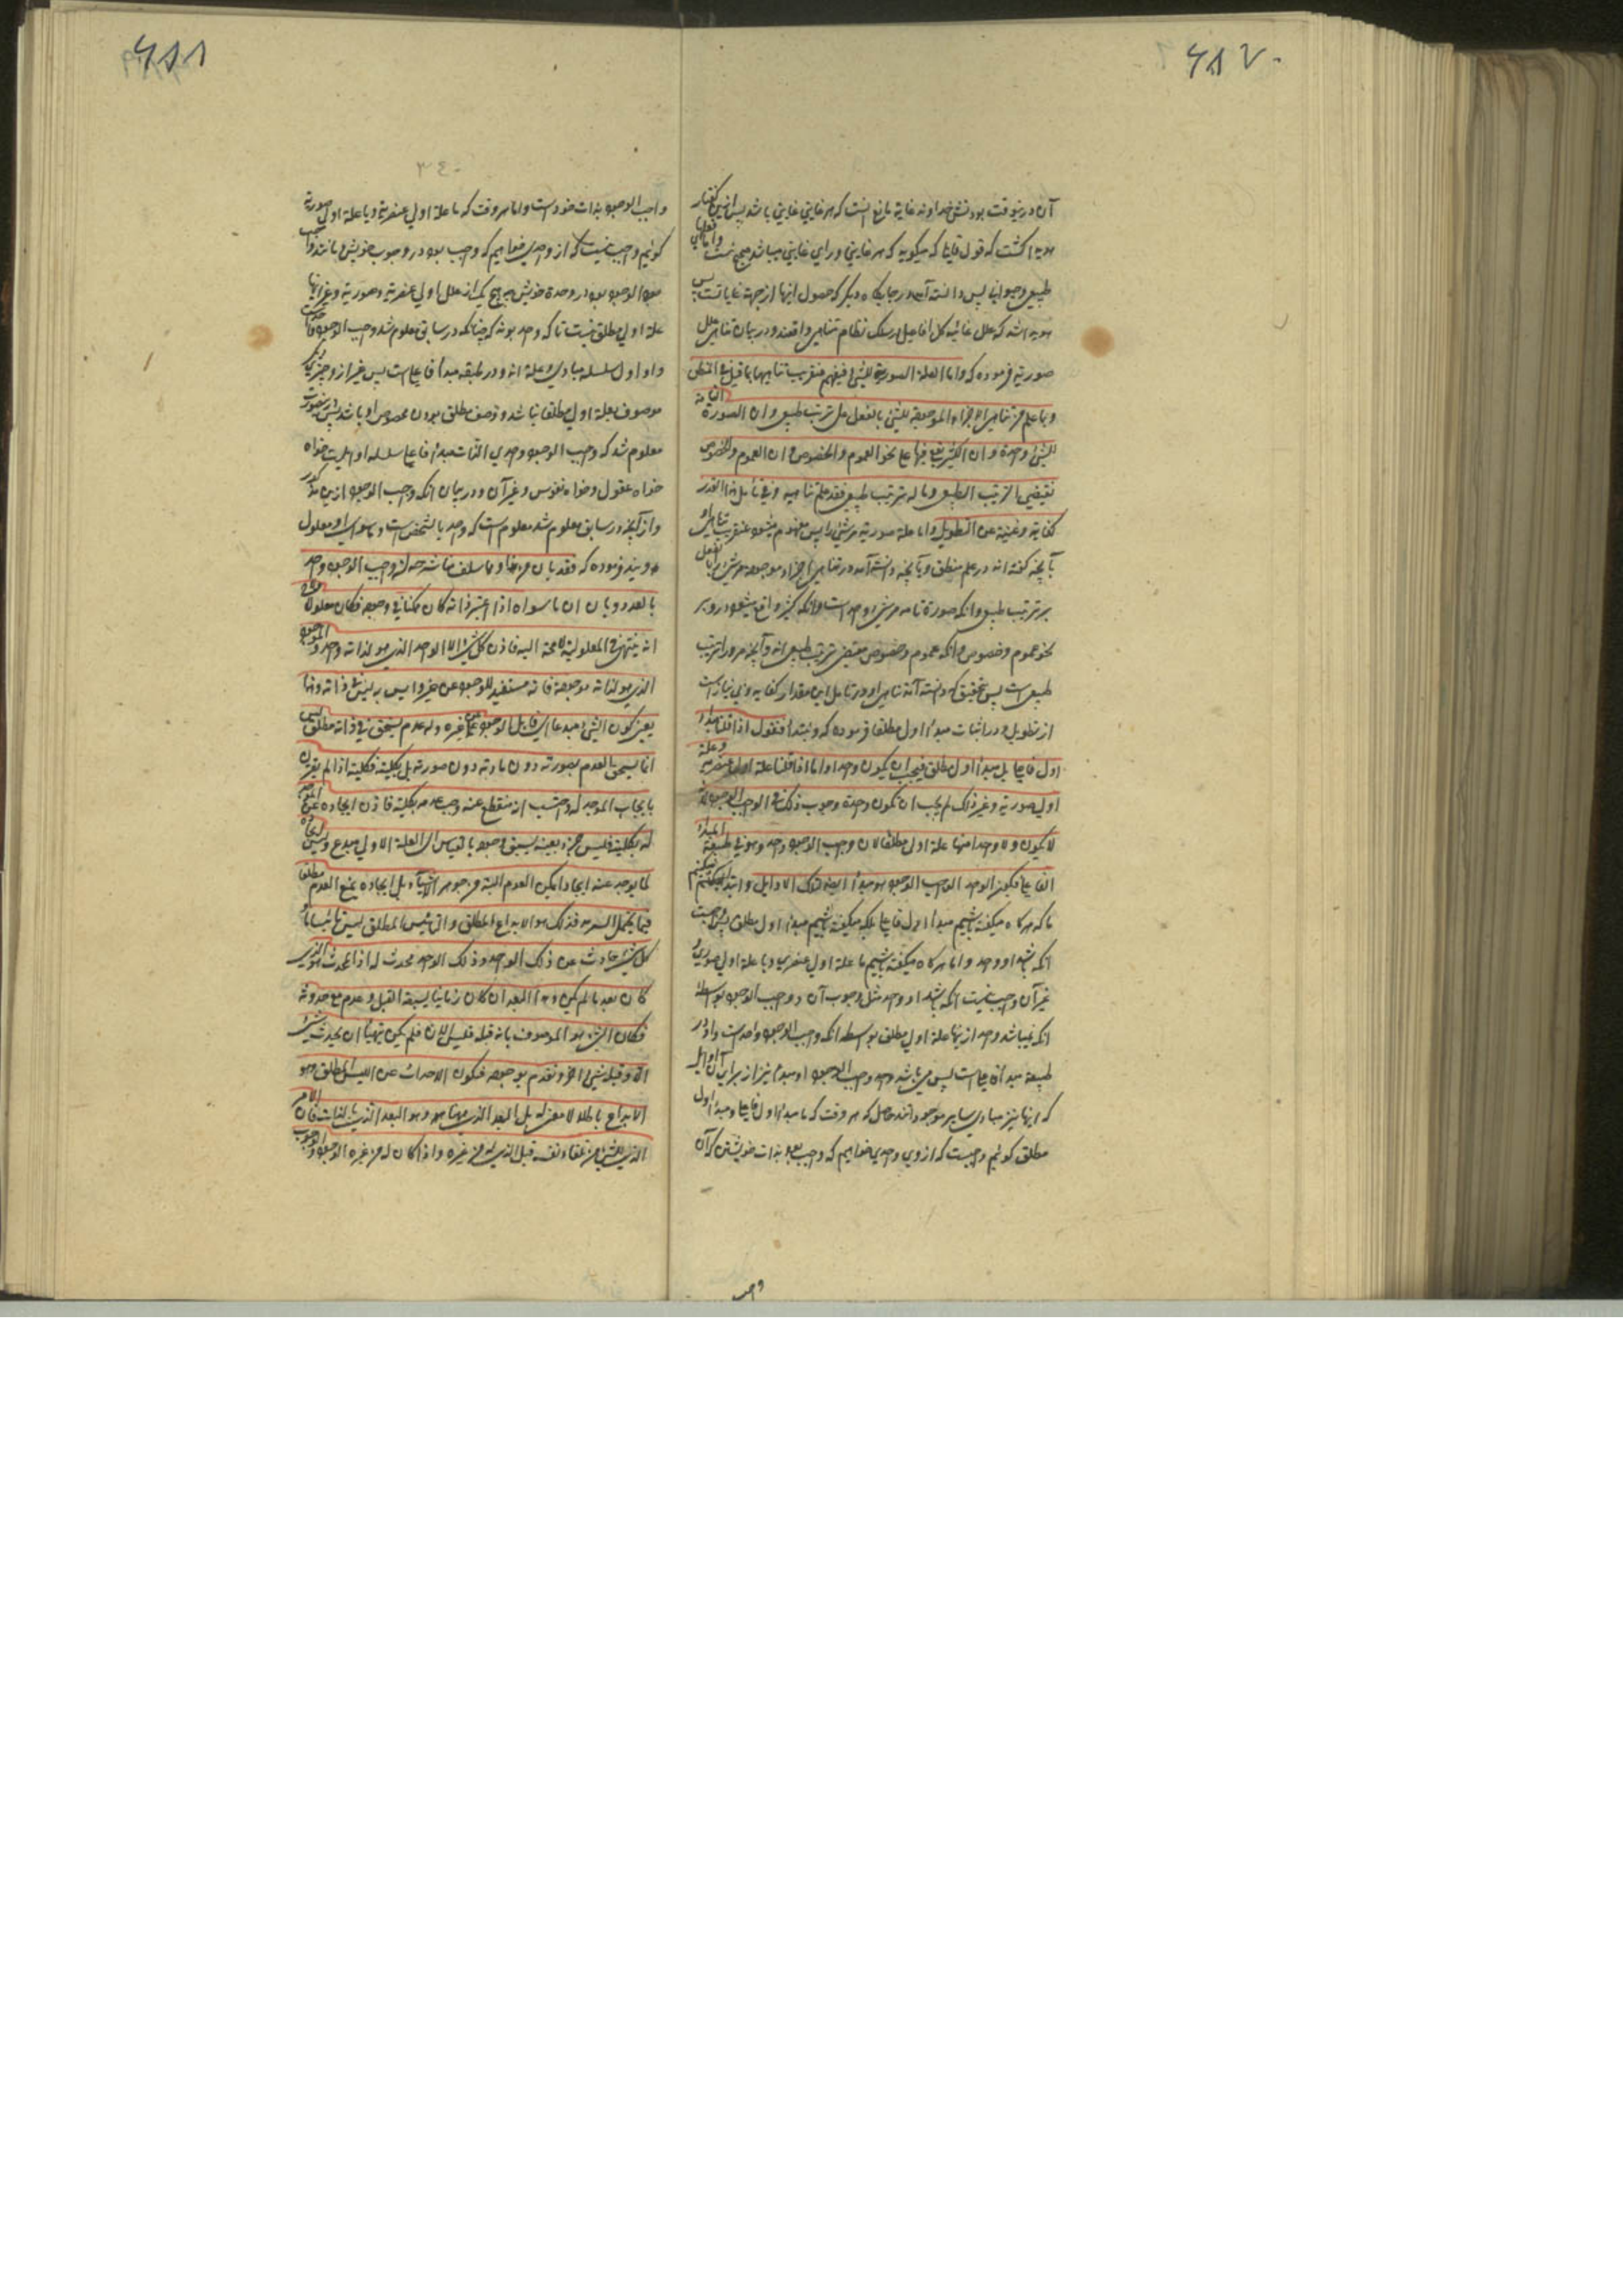 ٤٨٧
آن در نیوقت بود نش خداوند غایة مانع انست که هر غایتی غایتی باشد پس ازین گفتار
هویدا گشت که قول قایل که میگوید که هر غایتی ورای غایتی میباشد هیچ نیست واما افعال
طبیعی وحیوانی پس دانسته آمد در جایگاه دیگر که حصول اینها از جهة غایات است پس
هویدا شد که علل غائیه کل افاعیل در سلک نظام تناهی واقعند ودر بیان تناهی علل
صوریه فرموده که واما العلة الصوریة للشئ فیفهم عنقریب تناهیها بما قیل فی المنطق
وبما علم من تناهی الاجزاء الموجودة للشئ بالفعل علی ترتیب طبیعی وان الصورة التامة
للشئ واحدة وان الکثیر یقع فیها علی نحو العموم والخصوص وان العموم والخصوص
یقتضی الترتیب الطبیعی وما له ترتیب طبیعی فقد علم تناهیه وفی تامل هذا القدر
کفایة وغنیة عن التطویل واما علة صوریة مر شئ را پس مفهوم میشود عنقریب تناهی او
بآنچه گفته اند در علم منطق وبآنچه دانسته آمد در تناهی اجزاء موجوده مر شئ را بالفعل
بر ترتیب طبیعی وآنکه صورة تامه مر شئ را واحد است وآنکه کثیر واقع میشود در و بر
نحو عموم وخصوص وآنکه عموم وخصوص مقتضی ترتیب طبیعی اند وآنچه مر او را ترتیب
طبیعی است پس بتحقیق که دانسته آمد تناهی او ودر تامل این مقدار کفایه وبی نیازیست
از تطویل ودر اثبات مبدأ اول مطلقا فرموده که ونبتدأ فنقول اذا قلنا مبدأ
اول فاعلی بل مبدأ اول مطلق فیجب ان یکون واحدا واما اذا قلنا علة اولی عنصریة وعلة
اولی صوریة وغیر ذلک لم یجب ان تکون واحدة وجوب ذلک فی الواجب الوجود لانه
لا یکون ولا واحد منها علة اولی مطلقا لان واجب الوجود واحد وهو فی طبیعة المبدأ
الفاعلی فیکون الواحد الواجب الوجود هو مبدأ ایضا لتلک الاوایل وابتدا میکنیم
ما که هر گاه میگفته باشیم مبدأ اول فاعلی بلکه میگفته باشیم مبدأ اول مطلق پس واجبست
آنکه باشد او واحد واما هر گاه میگفته باشیم ما علة اولی عنصری وبا علة اولی صوری
غیر آن واجب نیست آنکه باشد او واحد مثل وجوب آن در واجب الوجود بواسطه
آنکه نمیباشد واحد از ینها علة اولی مطلق بواسطه آنکه واجب الوجود واحد است واو در
طبیعة مبدأ فاعلی است پس می باشد واحد واجب الوجود او مبدأ نیز از برای آن اوایل
که اینها نیز مبادی سایر موجوداتند حاصل که هر وقت که ما مبدأ اول فاعلی ومبدأ اول
مطلق گوئیم واجبست که از وی واحدی خواهیم که واجب بود بذات خویشتن که آن
واجب
٤٨٨
٣٤٠
واجب الوجود بذات خود است واما هر وقت که ما علة اولی عنصریة ویا علة اولی صوریة
گوئیم واجب نیست که از و واحدی خواهیم که واجب بود در وجوب خویش مانند واجب
الوجود بود در وحدة خویش چه هیچ یک از علل اولی عنصریة وصوریة وغیر اینها
علة اولی مطلق نیست تا که واحد بوند که چنانکه در سابق معلوم شد واجب الوجود واحدست
واو اول سلسله مبادی وعلة اند ودر طبقه مبدأ فاعلی است پس غیر از و چیز دیگر
موصوف بعلة اولی مطلقا نباشد ووصف مطلق بودن مخصوص او باشد پس درینصورت
معلوم شد که واجب الوجود واحدی الذات مبدأ فاعلی سلسله اولیست خواه
خواه عقول وخواه نفوس وغیر آن ودر بیان آنکه واجب الوجود ازین مذکور
واز آنچه در سابق معلوم شد معلوم است که واحد بالشخص است وما سوای او معلول
اویند فرموده که فقد بان من هذا ومما سلف لنا شرحه ان واجب الوجود واحد
بالعدد وبان ان ما سواه اذا اعتبر ذاته کان ممکنا فی وجوده فکان معلولا ولاح
انه ینتهی فی المعلولیة لا محة الیه فاذن کل شئ الا الواحد الذی هو لذاته واحد والموجود
الذی هو لذاته موجود فانه مستفید للوجود عن غیره وایس به لیس فی ذاته وهذا
یعنی کون الشئ مبدعا ای قابل الوجود عن غیره وله عدم یستحق فی ذاته مطلق لیس
انما یستحق العدم بصورته دون مادته دون صورته بل بکلیته فکلیته اذا لم یقترن
بایجاب الموجد له واحتسب انه منقطع عنه وجب عدمه بکلیته فاذن ایجاده عن الموجد
له بکلیته فلیس جزء بعینه یسبق وجوده بالقیاس الی العلة الاولی مبدع ولیس ایجاده
لما یوجد عنه ایجادا یمکن العدم البتة من جوهر الاشیآء بل ایجاده یمنع العدم مطلقا
فیما یحتمل السرمد فذلک هو الابداع المطلق والتأییس المطلق لیس تاییسا ما
کل شئ حادث عن ذلک الواحد وذلک الواحد محدث له اذ المحدث هو الذی
کان بعد ما لم یکن وهذا البعد ان کان زمانیا یسبقه القبل وعدم مع حدوثه
فکان الشئ هو الموصوف بانه قبله فلیس الان فلم یکن یتهیأ ان یحدث شئ
الا وقبله شئ اخر ونقدم بوجوده فیکون الاحداث عن اللیس المطلق وهو
الابداع باطلا لا معنی له بل البعد الذی هیهنا هو وهو البعد الذی بالذات فان الامر
الذی للشئ من تلقاء نفسه قبل الذی له من غیره واذا کان له من غیره الوجود والوجوب